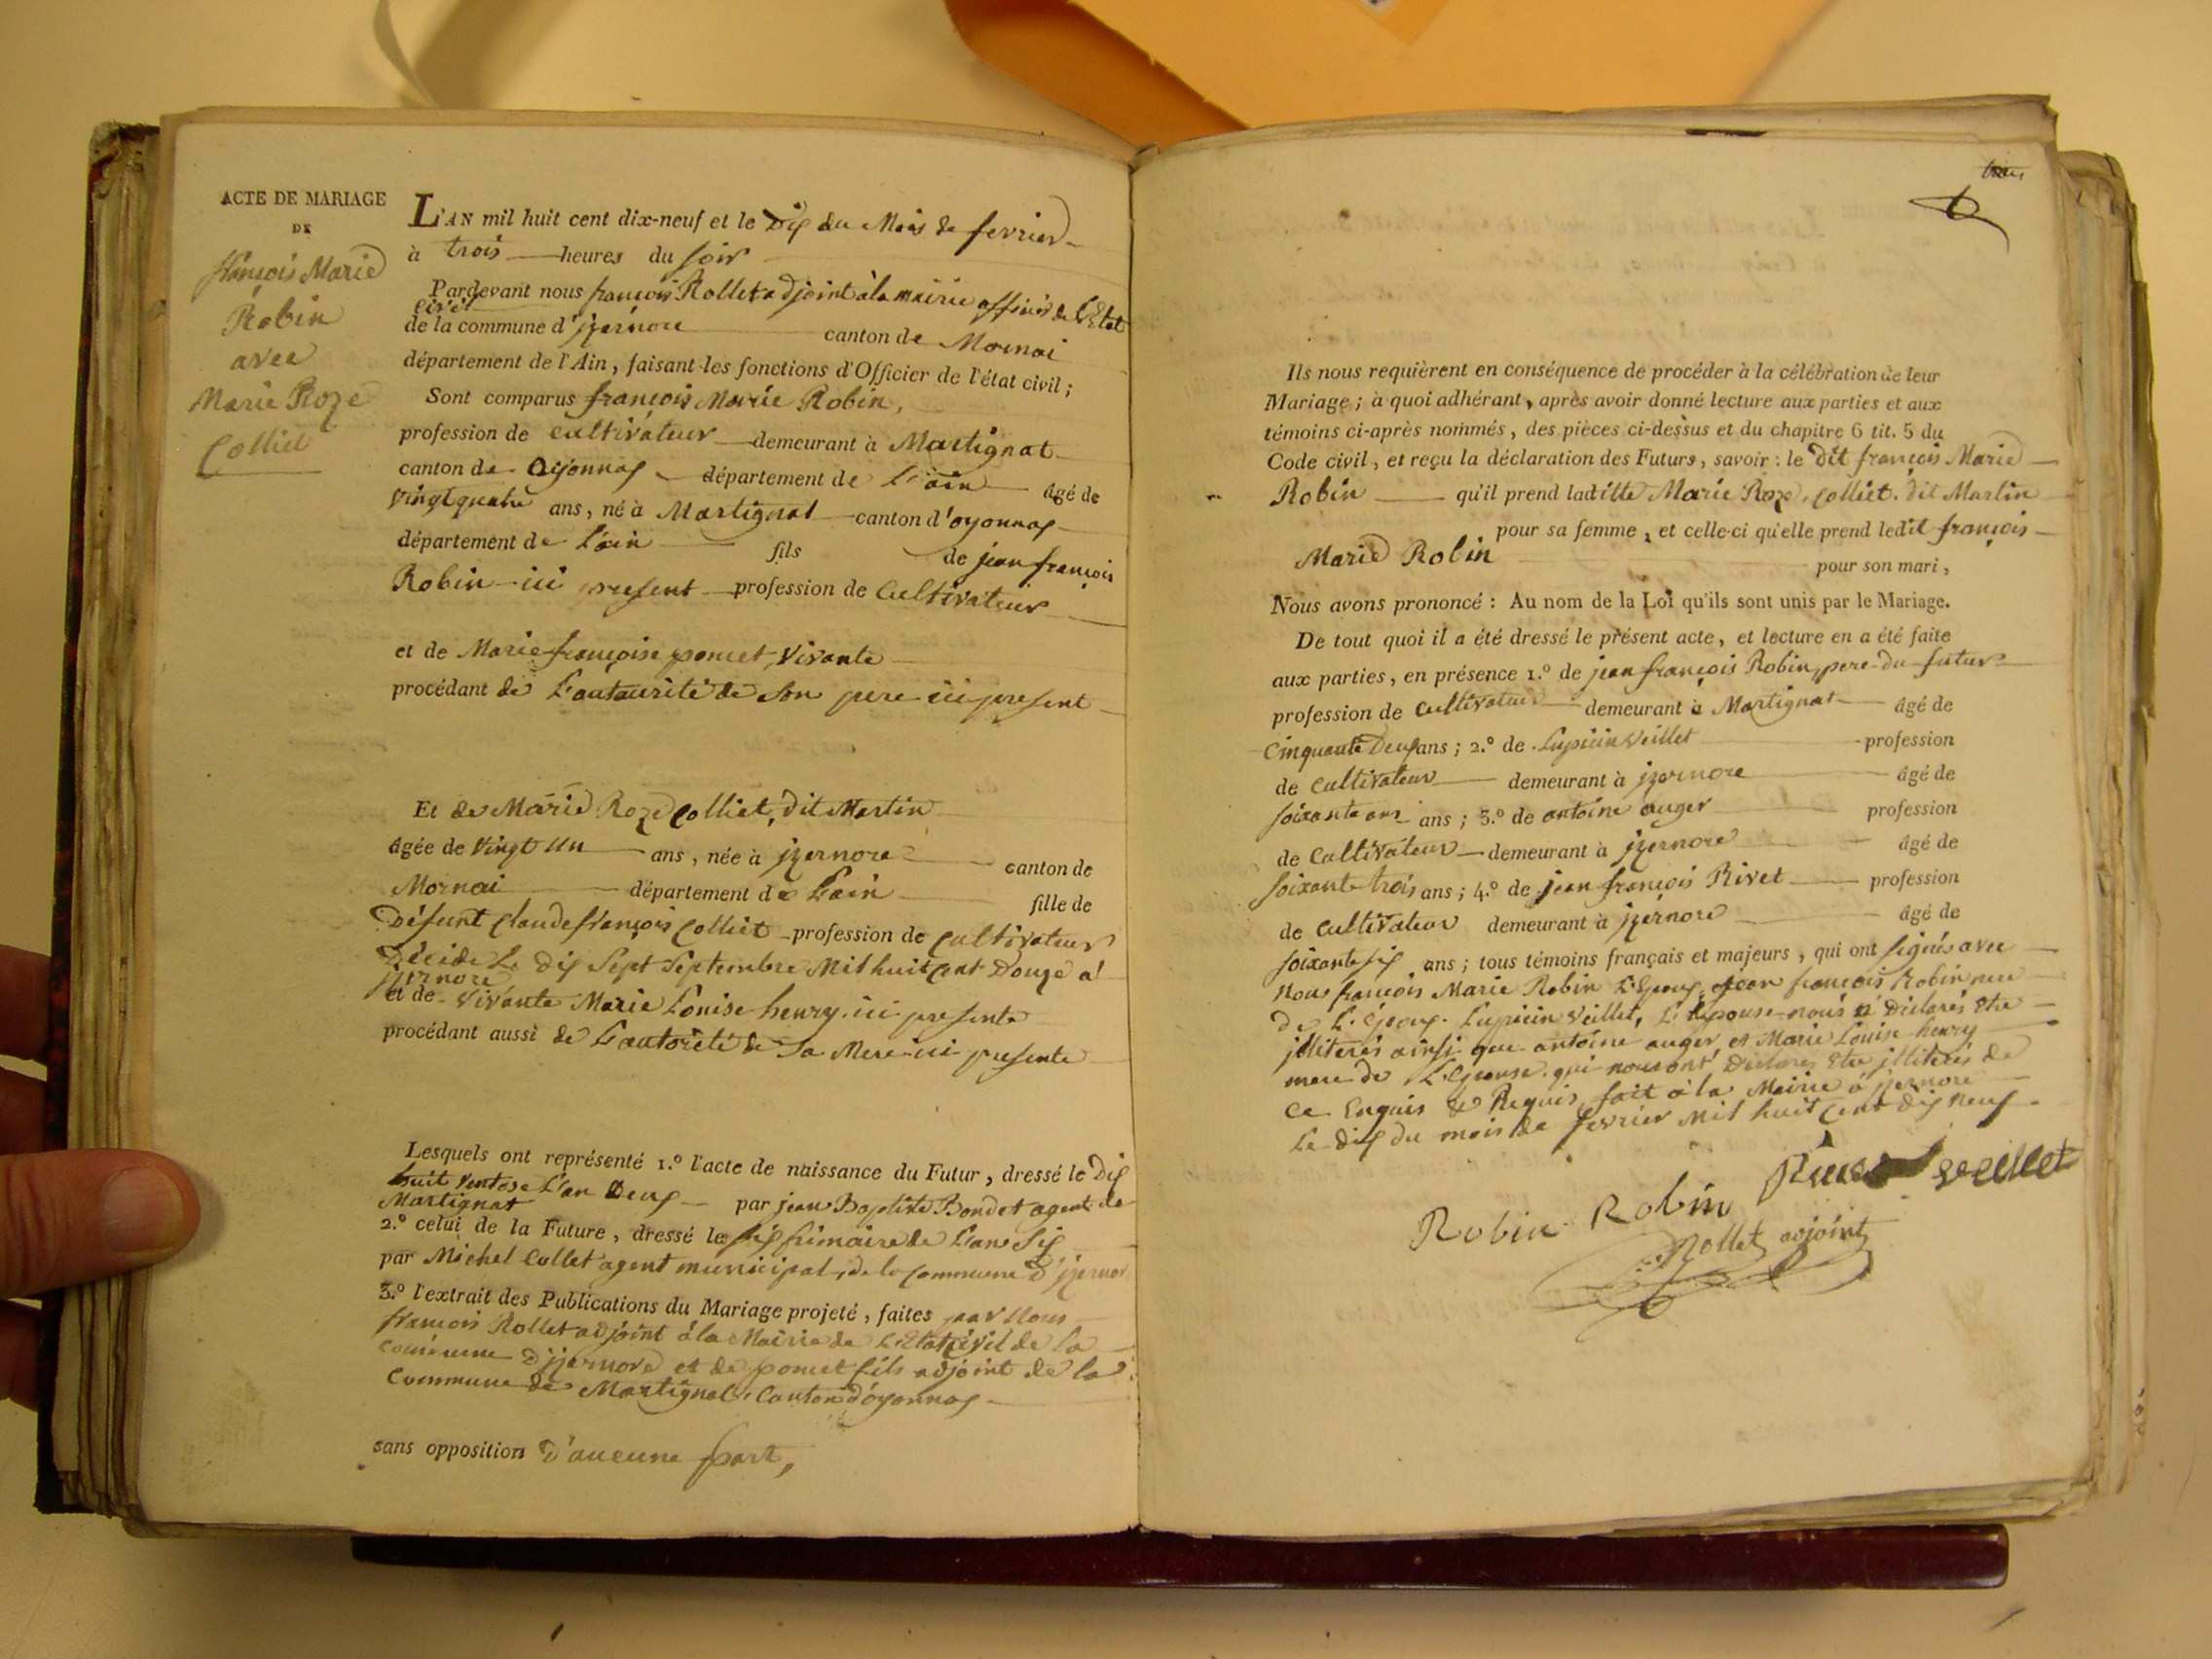 ACTE DE MARIAGE
DE
françois Marie
Robin
avec
Marie Roze
Colliet
L'AN mil huit cent dix-neuf et le Dix du Mois de fevrier
à trois heures du soir
Pardevant nous françois Rollet adjoint à la mairie officier de L'Etat
Civil
de la commune d'jzernore canton de Mornai
département de l'Ain, faisant les fonctions d'Officier de l'état civil;
Sont comparus françois Marie Robin,
profession de cultivateur demeurant à Martignat
canton de Oyonnax département de L'ain âgé de
vingt quatre ans, né à Martignat canton d'oyonnax
département de L'ain fils de jean françois
Robin ici present profession de Cultivateur
et de Marie françoise poncet, Vivante
procédant de L'autaurité de son pere ici present
Et de Marie Roze Colliet, dit Martin
âgée de Vingt Un ans, née à jzernore canton de
Mornai département de L'ain fille de
Défunt Claude françois Colliet profession de Cultivateur
Décidé Le dix Sept Septembre Mil huit Cent Douze a
jzernore
et de Vivante Marie Louise henry ici presente
procédant aussi de L'autorité de Sa Mere ici presente
Lesquels ont représenté 1.º l'acte de naissance du Futur, dressé le Dix
huit Ventose L'an Deux par jean Baptiste Bondet agent de
Martignat
2.º celui de la Future, dressé le six frimaire de L'an Six
par Michel Collet agent municipal de la Commune D'jzernor
3.º l'extrait des Publications du Mariage projeté, faites par Nous
francois Rollet adjoint à la Mairie de L'Etat Civil de la
Commune D'jzernore et de poncet fils adjoint de la
Commune de Martignat Canton d'oyonnax
sans opposition D'aucune part,
trois
Ils nous requièrent en conséquence de procéder à la célébration de leur
Mariage; à quoi adhérant, après avoir donné lecture aux parties et aux
témoins ci-après nommés, des pièces ci-dessus et du chapitre 6 tit. 5 du
Code civil, et reçu la déclaration des Futurs, savoir: le dit françois Marie
Robin qu'il prend ladite Marie Roze, Colliet. dit Martin
pour sa femme, et celle-ci qu'elle prend ledit françois
Marie Robin pour son mari,
Nous avons prononcé: Au nom de la Loi qu'ils sont unis par le Mariage.
De tout quoi il a été dressé le présent acte, et lecture en a été faite
aux parties, en présence 1.º de jean françois Robin, pere du futur
profession de Cultivateur demeurant à Martignat âgé de
Cinquante Deux ans; 2.º de Lupicin Veillet profession
de Cultivateur demeurant à jzernore âgé de
soixante ans; 3.º de antoine auger profession
de Cultivateur demeurant à jzernore âgé de
soixante trois ans; 4.º de jean françois Rivet profession
de Cultivateur demeurant à jzernore âgé de
soixante six ans; tous témoins français et majeurs, qui ont signés avec
Nous francois Marie Robin L'Epoux, jean francois Robin pere
de L'Epoux. Lupicin Veillet, L'épouse nous a déclarés Etre
jlliterés ainsi que antoine auger et Marie Louise henry
mere de L'Epouse qui nous ont Déclarés Etre jlliterés de
Ce Enquis & Requis, fait à la Mairie à jzernore
Le dix du mois de fevrier Mil huit Cent dix neuf
Robin Robin Rivet Veillet
Rollet adjoint